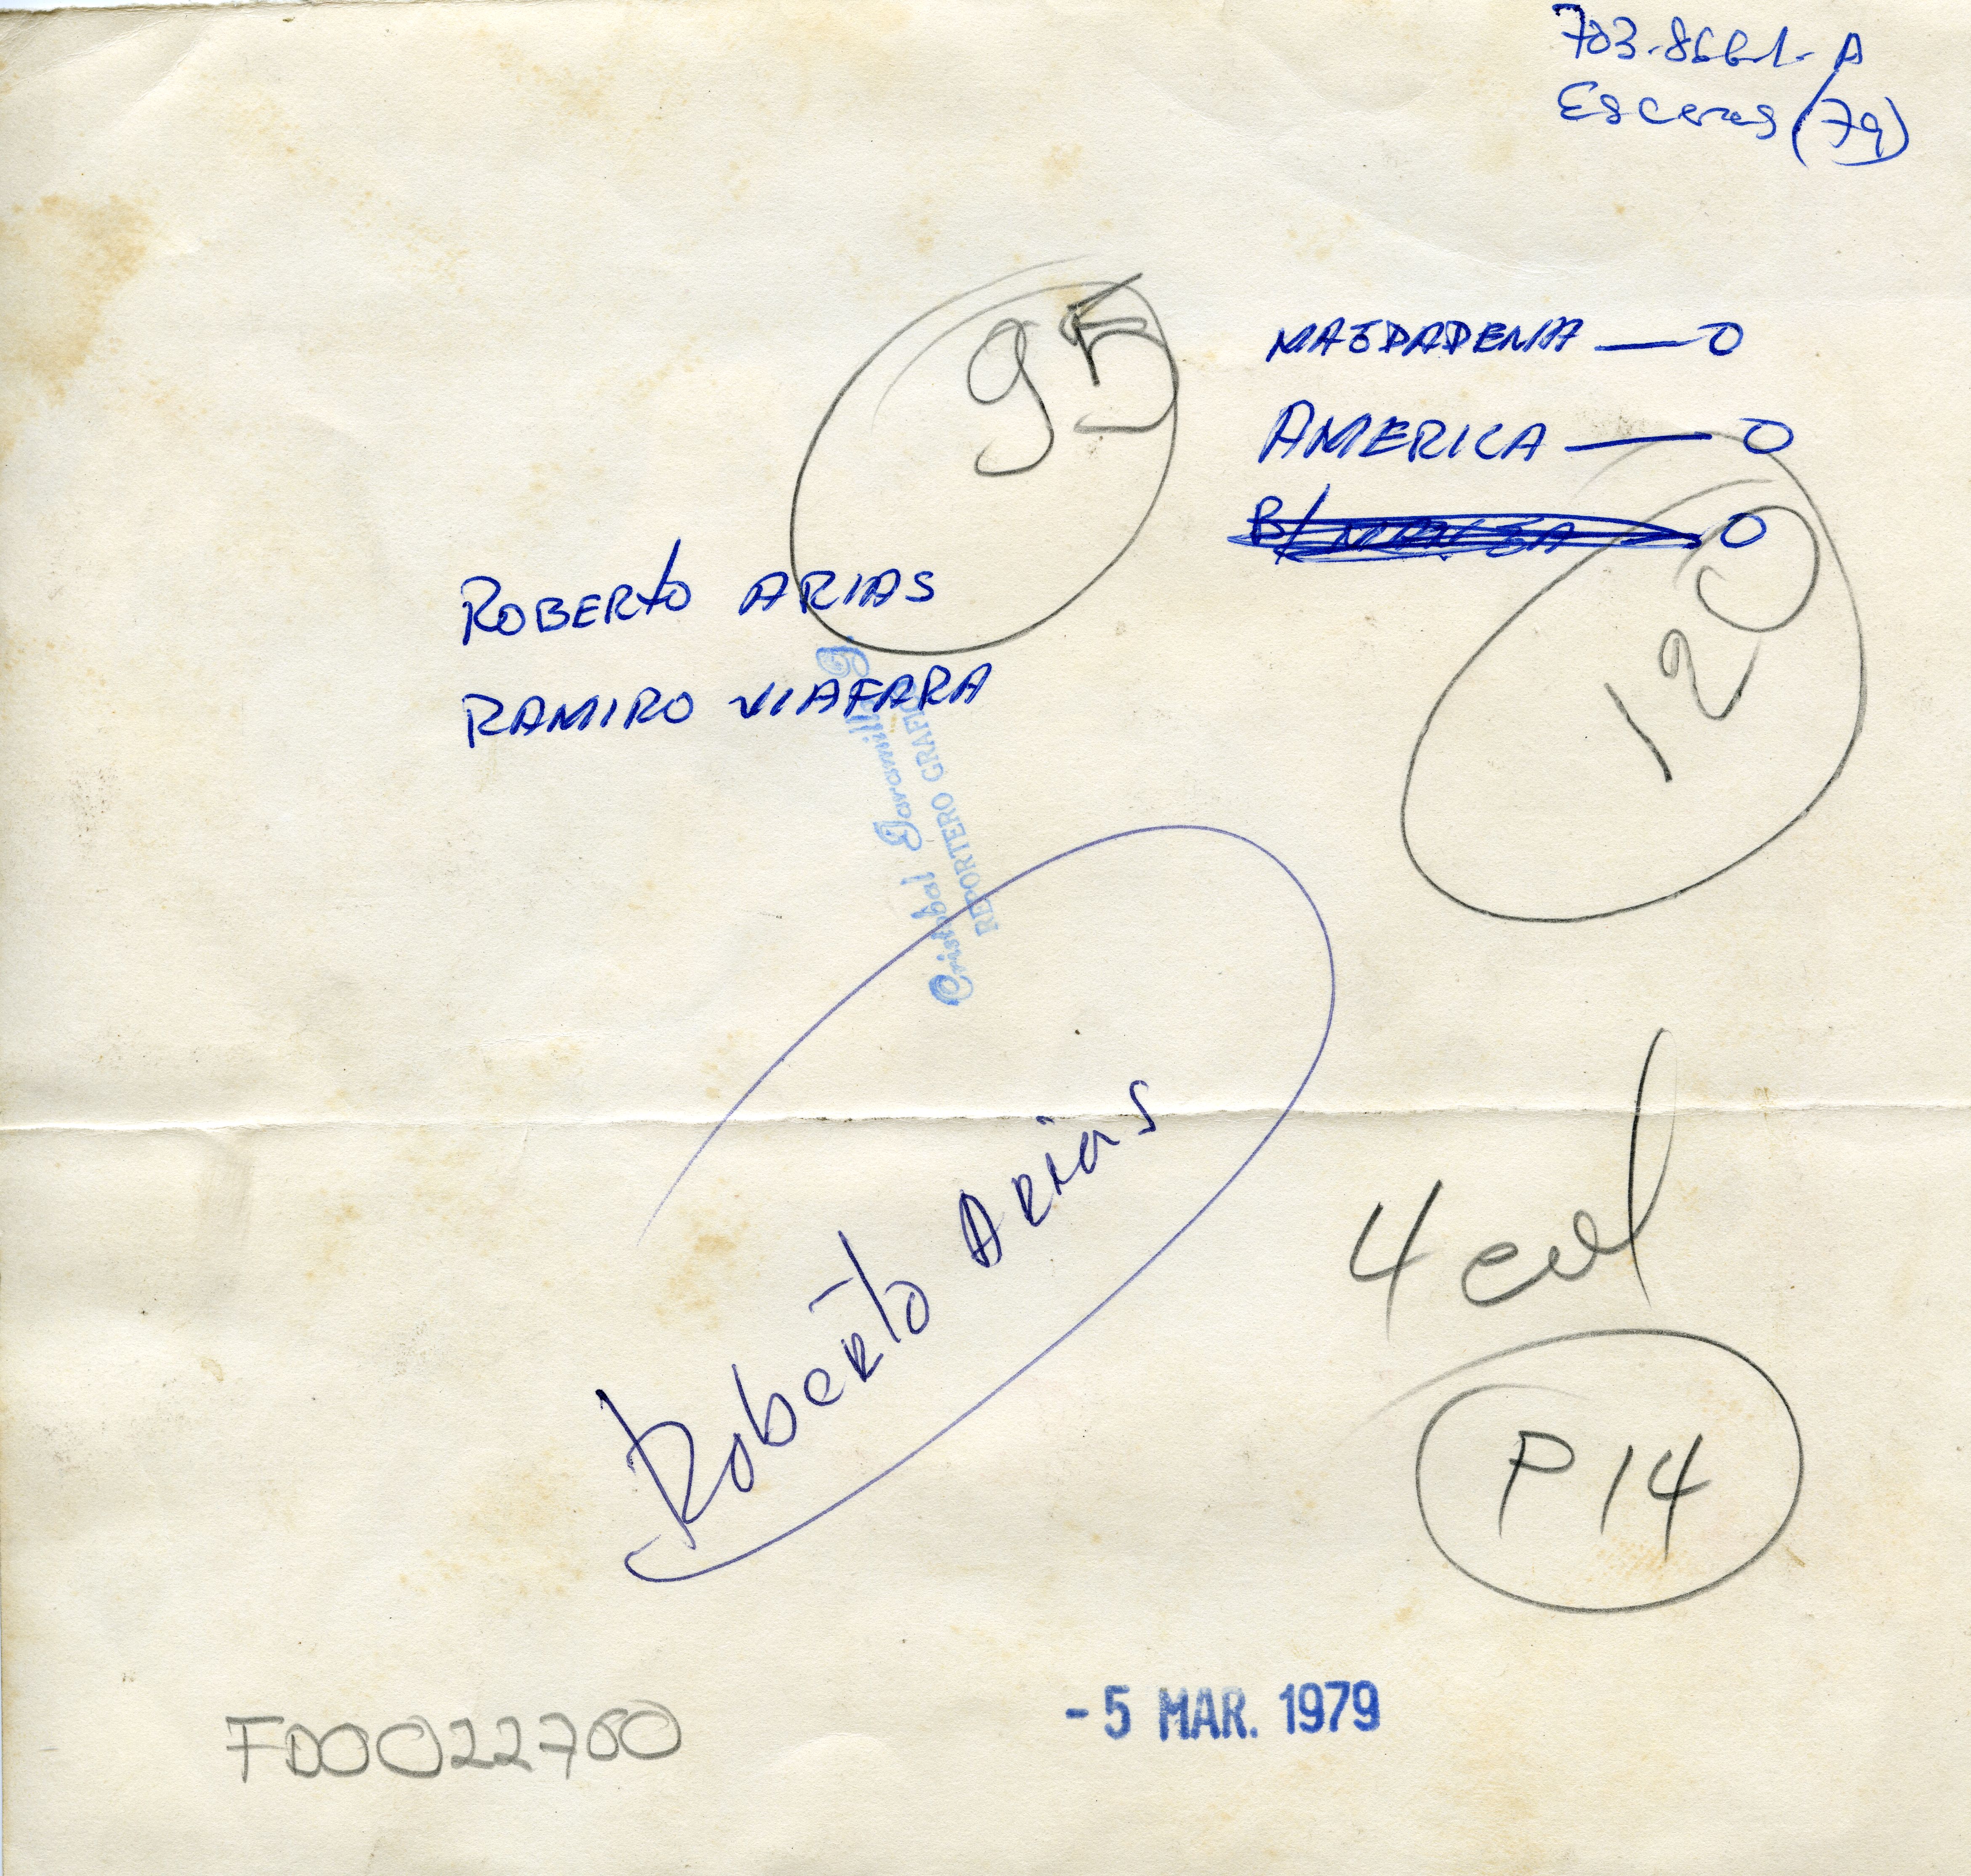 703-8661-A
Escenas (79)
95
MAGDADENA — 0
AMERICA — 0
B/ 0
120
ROBERTO ARIAS
RAMIRO VIAFARA
Cristobal Jaramillo G.
REPORTERO GRAFICO
Roberto Arias
4 col
P14
- 5 MAR. 1979
FD0022760